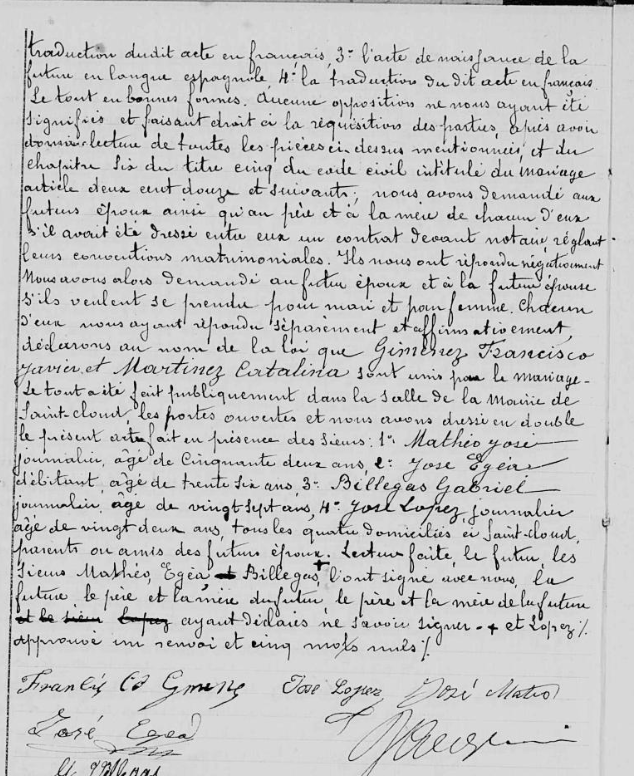 traduction dudit acte en français, 3° l'acte de naissance de la
future en langue espagnole, 4° la traduction du dit acte en français
Le tout en bonnes formes. Aucune opposition ne nous ayant été
signifiée et faisant droit à la réquisition des parties, après avoir
donné lecture de toutes les pièces ci-dessus mentionnées, et du
chapitre six du titre cinq du code civil intitulé du mariage
article deux cent douze et suivants; nous avons demandé aux
futurs époux ainsi qu'au père et à la mère de chacun d'eux
s'il avait été dressé entre eux un contrat devant notaire, réglant
leurs conventions matrimoniales. Ils nous ont répondu négativement
Nous avons alors demandé au futur époux et à la future épouse
s'ils veulent se prendre pour mari et pour femme. Chacun
d'eux nous ayant répondu séparément et affirmativement,
déclarons au nom de la loi que Giménez Francisco
Javier, et Martinez Catalina sont unis par le mariage-
Le tout a été fait publiquement dans la salle de la Mairie de
Saint-Cloud les portes ouvertes et nous avons dressé en double
le présent acte fait en présence des Sieurs: 1° Mathéo José
journalier, âgé de Cinquante deux ans, 2° José Egéa
débitant, âgé de trente six ans, 3° Billegas Gabriel
journalier, âgé de vingt sept ans, 4° José Lopez, journalier
âgé de vingt deux ans, tous les quatre domiciliés à Saint-Cloud,
parents ou amis des futurs époux. Lecture faite, le futur, les
Sieurs Mathéo, Egéa, et Billegas + l'ont signé avec nous, la
future, le père et la mère du futur, le père et la mère de la future
et le sieur Lopez ayant déclaré ne savoir signer - + et Lopez %.
approuvé un renvoi et cinq mots nuls %
José Lopez José Mateo
José Egea